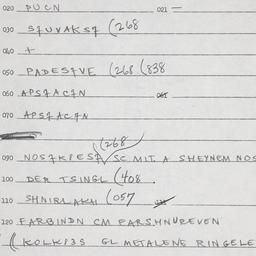 020 PUCN 021 —
030 S7UVAKS7 (268
040 +
050 PADES7VE (268 (838
060 APS7AC7N 061
070 APS7AC7N
(268
090 NOS7KPES7 / SC MIT A SHEYNEM NOS
100 DER TSINGL (408
110 SHNIRLAKH (057
120 FARBINDN CM FARSHNUREVEN
( KOLKI3S GL METALENE RINGELE